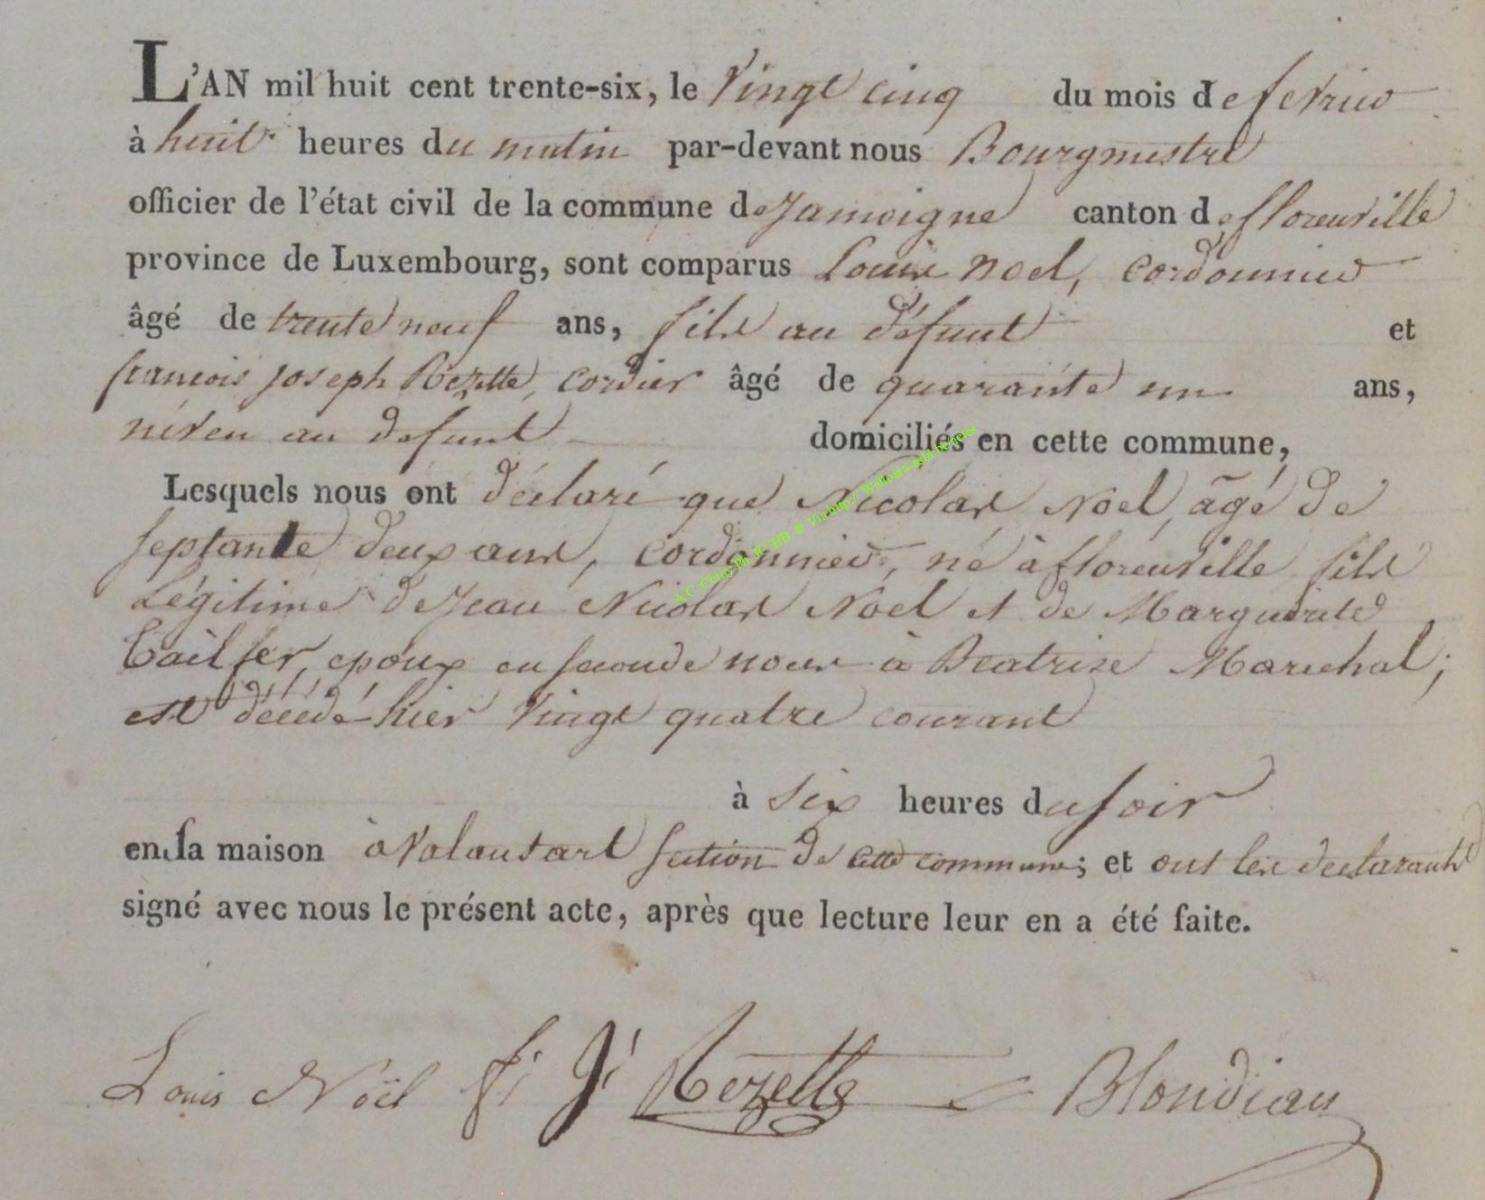 L'AN mil huit cent trente-six, le Vingt cinq du mois de fevrier
à huit heures du matin par-devant nous Bourgmestre
officier de l'état civil de la commune de Jamoigne canton de florenville
province de Luxembourg, sont comparus Louis Noel, cordonnier
âgé de trente neuf ans, fils au défunt et
francois Joseph Rezette, cordier âgé de quarante un ans,
neveu au defunt domiciliés en cette commune,
Lesquels nous ont déclaré que Nicolas Noël, âgé de
septante deux ans, cordonnier, né à florenville fils
Légitime de Jean Nicolas Noël et de Marguerite
époux en seconde noces à Beatrise Marechal;
est décédé hier Vingt quatre courant
à six heures du soir
en sa maison à Valansart section de cette commune; et ont les déclarants
signé avec nous le présent acte, après que lecture leur en a été faite.
Louis Noël f. J. Rezette Blondiau